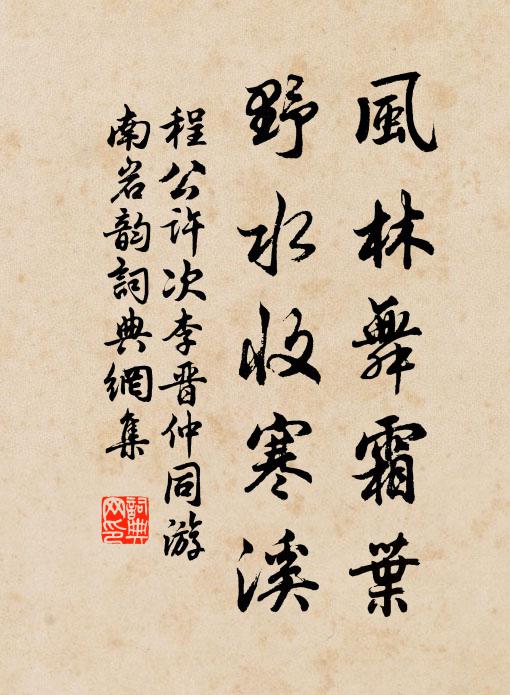 風林舞霜葉
野水收寒溪
程公许次李晋仲同游
南岩韵詞典網集
詞典网印